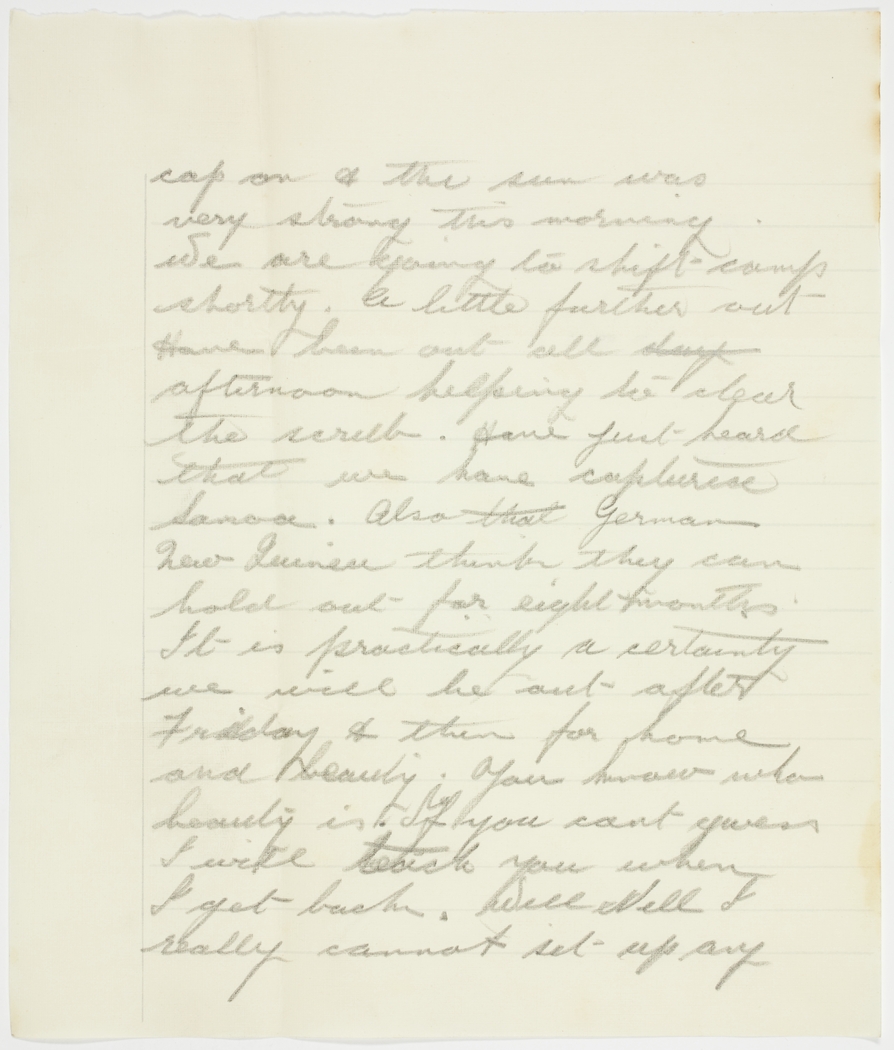 cap on & the sun was
very strong this morning.
We are going to shift camp
shortly. A little further out
Have been out all day
afternoon helping to clear
the scrub. Have just heard
that we have captured
Samoa. Also that German
New Guinea think they can
hold out for eight months.
It is practically a certainty
we will be out after
Friday & then for home
and beauty. You know who
beauty is. If you cant guess
I will teach you when
I get back. Well Nell I
really cannot sit up any